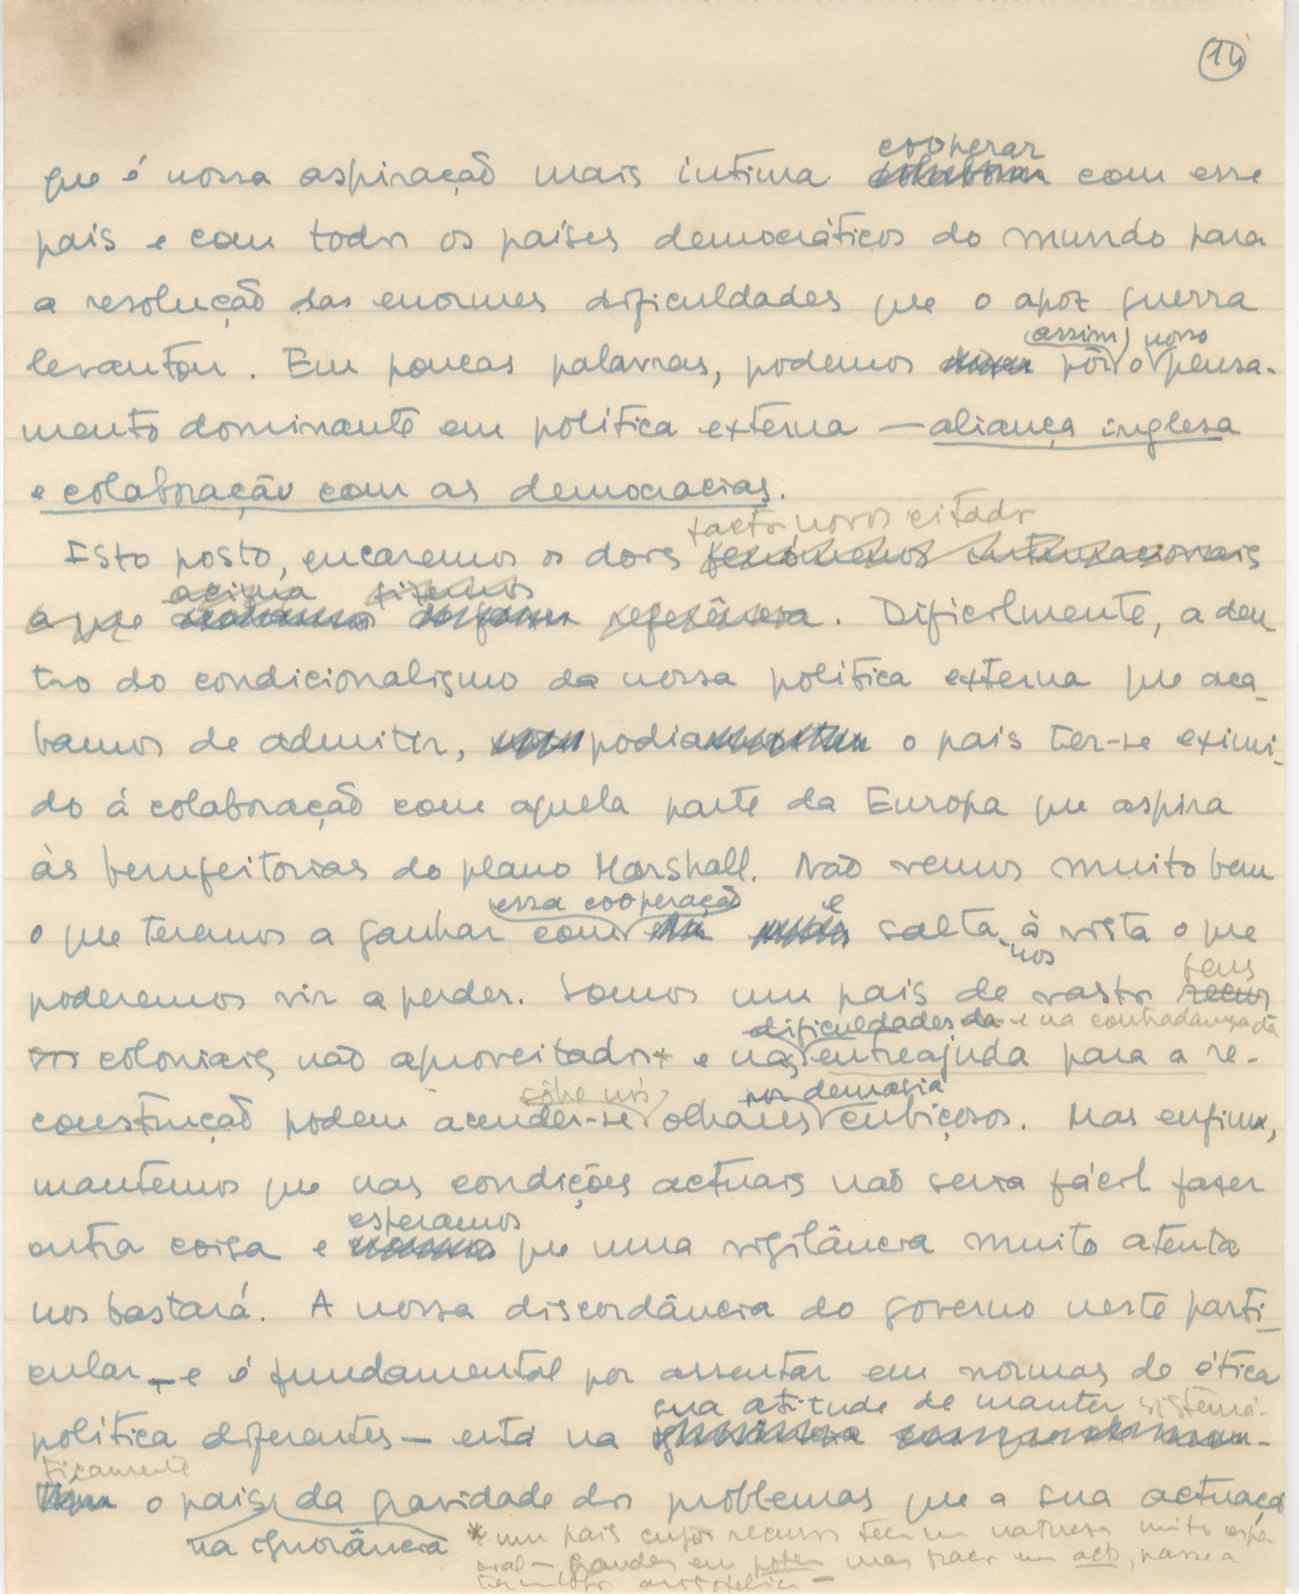 14
cooperar
que é nossa aspiração mais íntima com esse
país e com todos os países democráticos do mundo para
a resolução das enormes dificuldades que o apoz guerra
(assim) nosso
levantou. Em poucas palavras, podemos dizer pôr o pensa-
mento dominante em política externa — aliança inglesa
e colaboração com as democracias.
factos novos citados
Isto posto, encaremos os dois fenómenos internacionais
acima fizemos
a que referência. Dificilmente, a den
tro do condicionalismo da nossa política externa que aca-
bamos de admitir, podia o país ter-se eximi-
do á colaboração com aquela parte da Europa que aspira
às bemfeitorias do plano Marshall. Não vemos muito bem
essa cooperação e
o que teremos a ganhar com salta-nos à vista o que
bens
poderemos vir a perder. Somos um país de vastos recur
dificuldades da e na contradança da
sos coloniais não aproveitados* e nas entreajuda para a re-
sôbre nós por demasia
construção podem acender-se olhares cubiçosos. Mas enfim,
mantemos que nas condições actuais não seria fácil fazer
esperamos
outra coisa e que uma vigilância muito atenta
nos bastará. A nossa discordância do governo neste parti-
cular — e é fundamental por assentar em normas de ética
sua atitude de manter sistemá-
política diferentes — está na
ticamente
o país da gravidade dos problemas que a sua actuação
na ignorância
* um país cujos recursos teem natureza muito espe
cial — grandes em poten mas fracos em acto, passe a